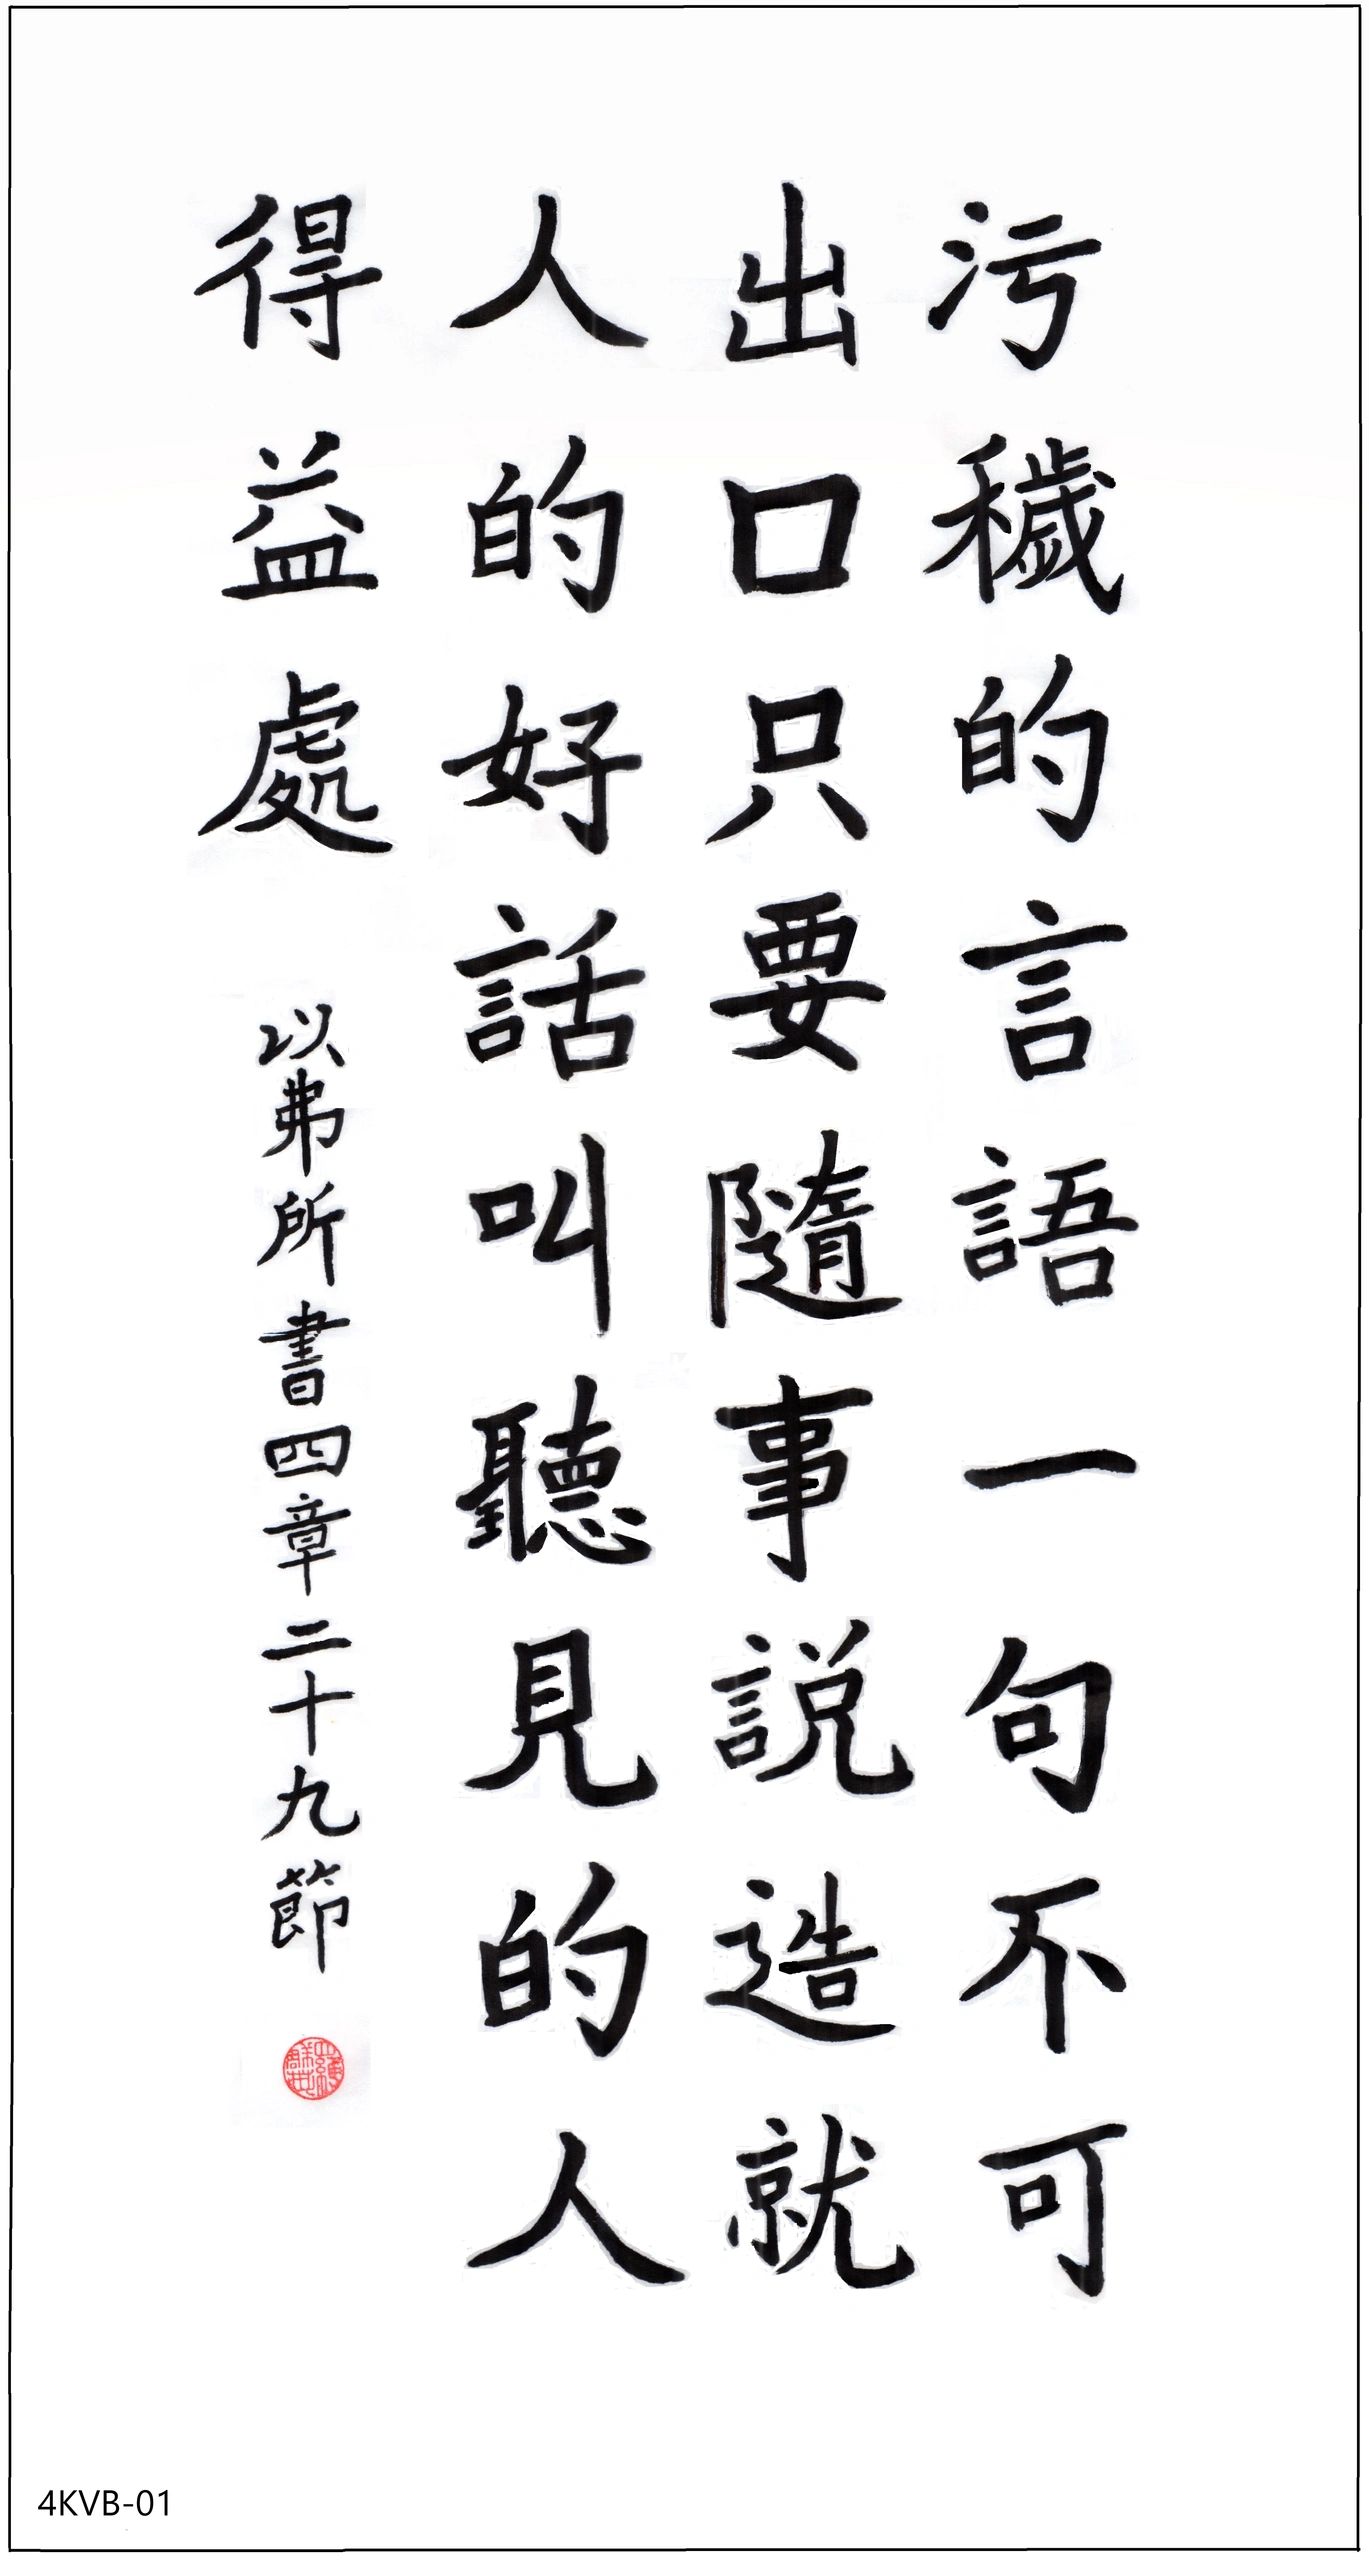 污穢的言語一句不可
出口只要隨事說造就
人的好話叫聽見的人
得益處
以弗所書四章二十九節
4KVB-01